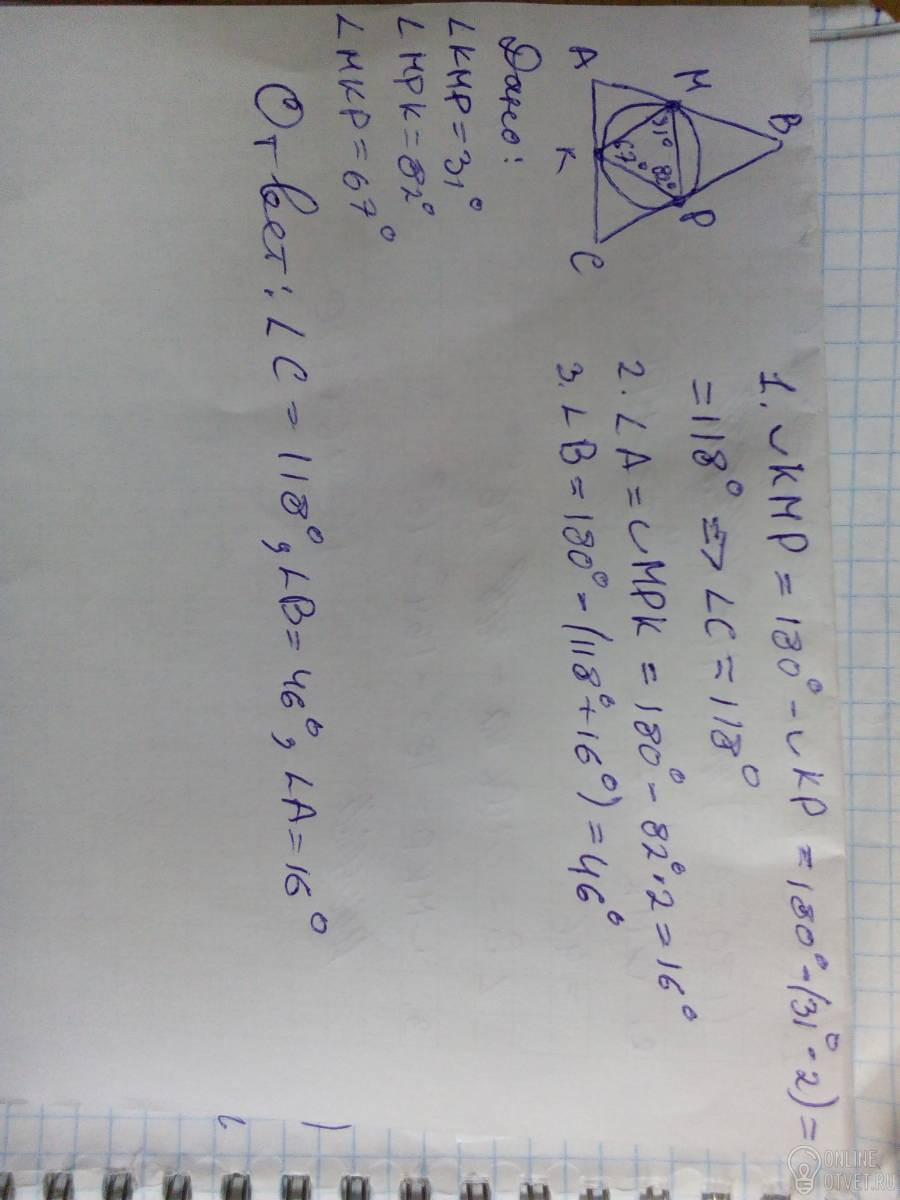 B
M
P
A
K
C
31°
82°
67°
Дано:
∠KMP = 31°
∠MPK = 82°
∠MKP = 67°
1. ◡KMP = 180° - ◡KP = 180° - (31° · 2) =
= 118° => ∠C = 118°
2. ∠A = ◡MPK = 180° - 82° · 2 = 16°
3. ∠B = 180° - (118° + 16°) = 46°
Ответ: ∠C = 118°, ∠B = 46°, ∠A = 16°
ONLINE
OTVET.RU